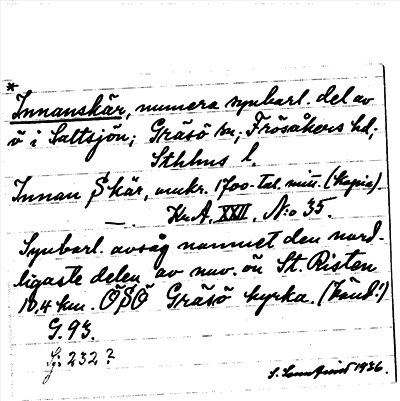 *
Innanskär, numera synbarl. del av
ö i Saltsjön; Gräsö sn; Frösåkers hd;
Sthlms l.
Innan Skär, omkr. 1700-tal. mitt. (Kopia).
Kr. A. XXII. N:o 35.
Synbarl. avsåg namnet den nord-
ligaste delen av nuv. ön St. Risten
10,4 km. ÖSÖ Gräsö kyrka. (Känd!)
G. 93.
Sj: 232?
1936.